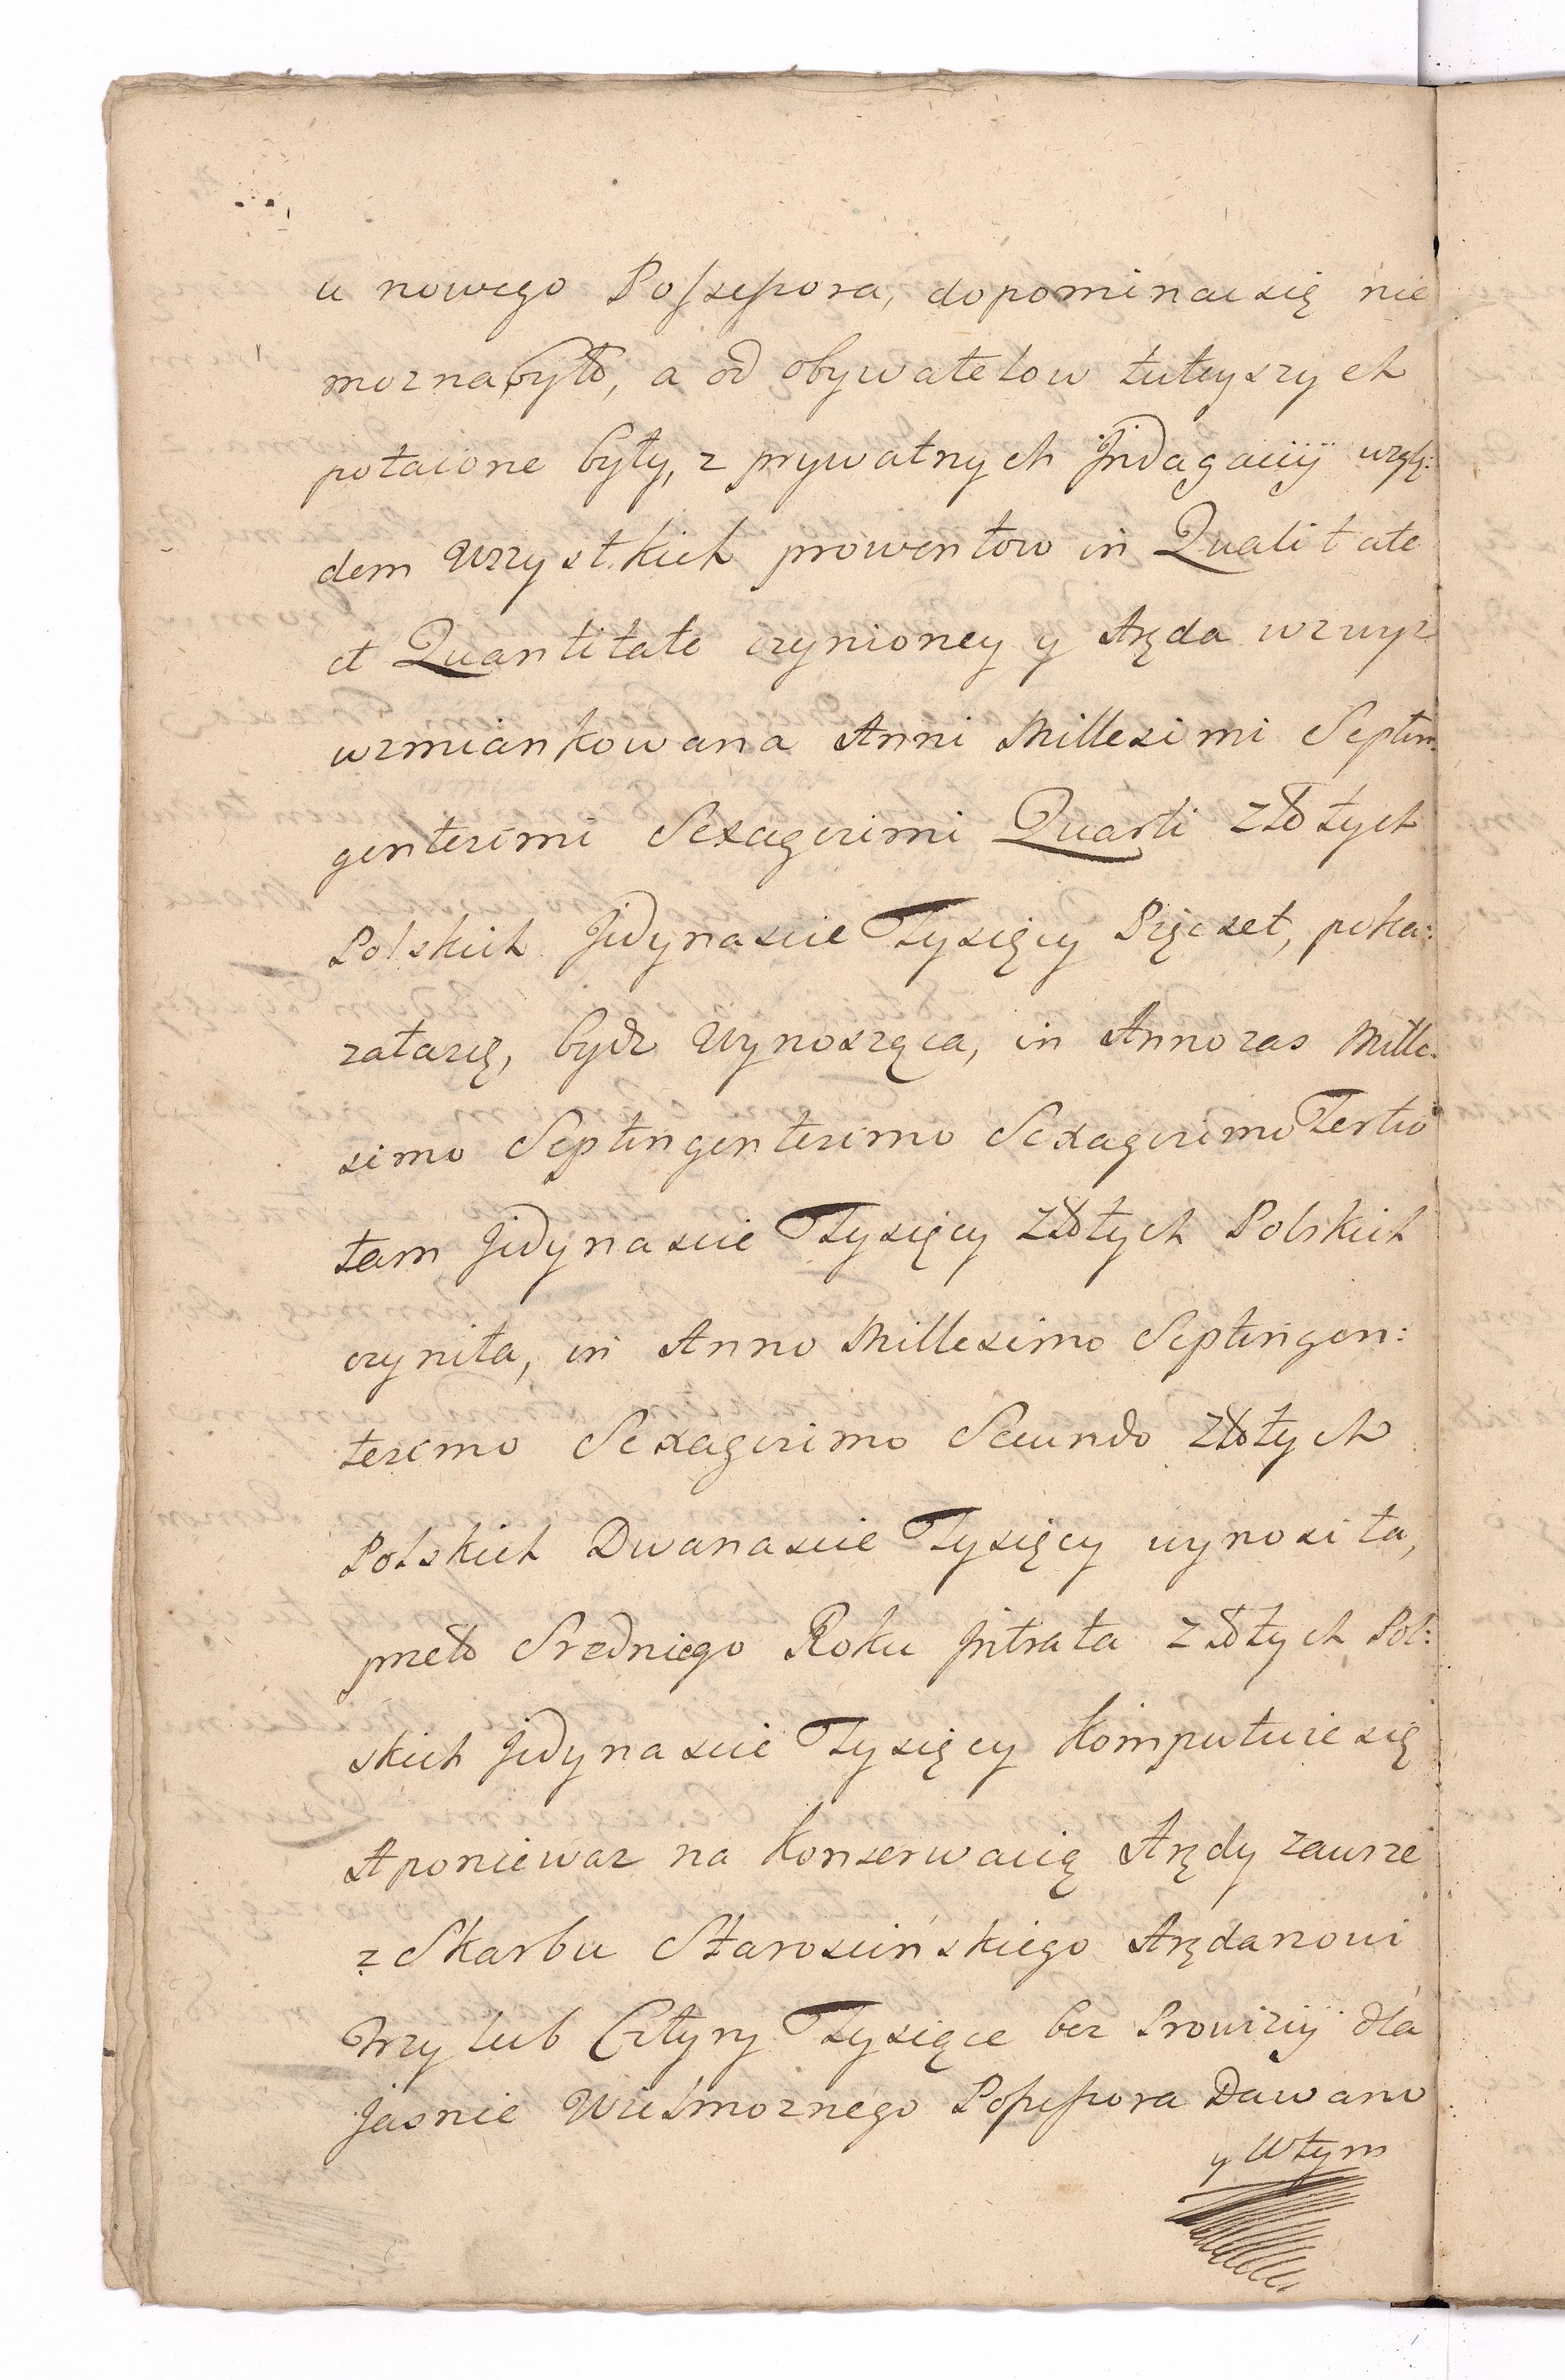 u nowego Possessora, dopominac się nie
mozna było, a od obywatelow tuteyszych
potaione były, z prywatnych Jndagacyi wzglę:
dem wszystkich prowentow in Qualitate
et Quantitate czynioney y Aręda wzwyz
wzmiankowana Anni Millesimi Septin:
gentesimi Sexagesimi Quarti złotych
Polskich Jedynascie Tysięcy Pięcset, poka:
załasię, bydz wynosząca, in Anno zas Mille:
simo Septingentesimo Sexagesimo Tertio
tam Jedynascie Tysięcy złotych Polskich
czyniła, in Anno Millesimo Septingen:
tesimo Sexagesimo Secundo złotych
Polskich Dwanascie Tysięcy wynosiła,
przeto Sredniego Roku Jntrata złotych Pol:
skich Jedynascie Tysięcy komputuie się
A poniewaz na konserwacią Arędy zawsze
z Skarbu Staroscińskiego Arędarzowi
Trzy lub Cztyry Tysiące bez Prowizyi dla
Jasnie Wielmoznego Possessora Dawano
y Wtym